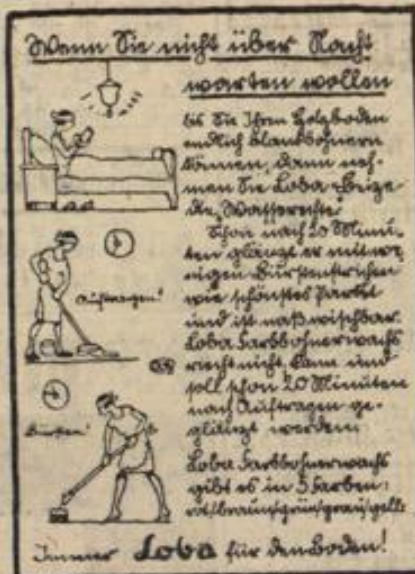 Wenn Sie nicht über Nacht
warten wollen
bis Sie Ihren Holzboden
endlich blankbohnern
können, dann neh-
men Sie Loba-Beize
die "Wasserechte"
Schon nach 20 Minu-
ten glänzt er mit we-
nigen Bürstenstrichen
wie schönstes Parkett
und ist naß wischbar.
Loba Farbbohnerwachs
riecht nicht, kann und
soll schon 20 Minuten
nach Auftragen ge-
glänzt werden.
Auftragen!
Bürsten!
Loba Farbbohnerwachs
gibt es in 5 Farben:
rot/braun/grün/grau/gelb
Immer Loba für den Boden!